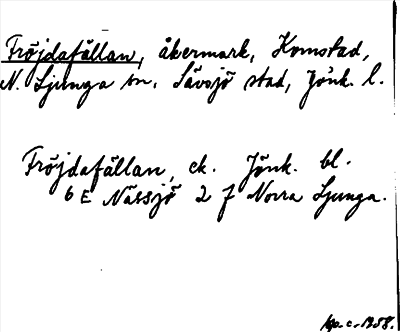 Fröjdafällan, åkermark, Komstad,
N. Ljunga sn. Sävsjö stad, Jönk. l.
Fröjdafällan, ek. Jönk. bl.
6 E Nässjö 2 f Norra Ljunga.
1958.